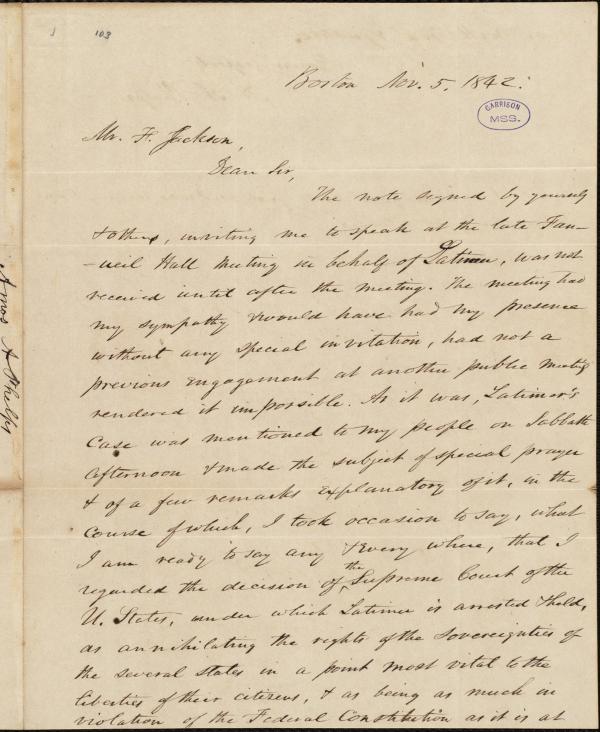 1 103
Boston Nov. 5. 1842.
GARRISON
MSS.
Mr. F. Jackson,
Dear Sir,
The note signed by yourself
& others, inviting me to speak at the late Fan-
-ueil Hall Meeting in behalf of Latimer, was not
received until after the meeting. The meeting had
my sympathy & would have had my presence
without any special invitation, had not a
previous engagement at another public meeting
rendered it impossible. As it was, Latimer's
case was mentioned to my people on Sabbath
afternoon & made the subject of special prayer
& of a few remarks explanatory of it, in the
course of which, I took occasion to say, what
I am ready to say any & every where, that I
regarded the decision of the Supreme Court of the
U. States, under which Latimer is arrested & held,
as annihilating the rights of the sovereignties of
the several states in a point most vital to the
liberties of their citizens, & as being as much in
violation of the Federal Constitution as it is at
Amos A Phelps